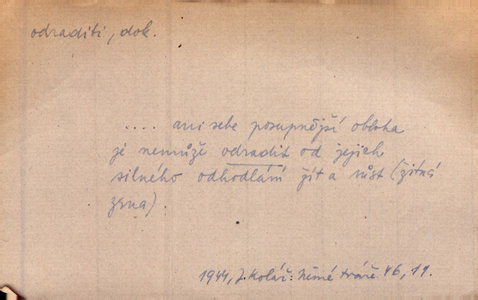 odraditi, dok.
.... ani sebe posupnější obloha
je nemůže odradit od jejich
silného odhodlání žít a růst (žitná
zrna)
1944, J. Kolář: Němé tváře 46, 11.